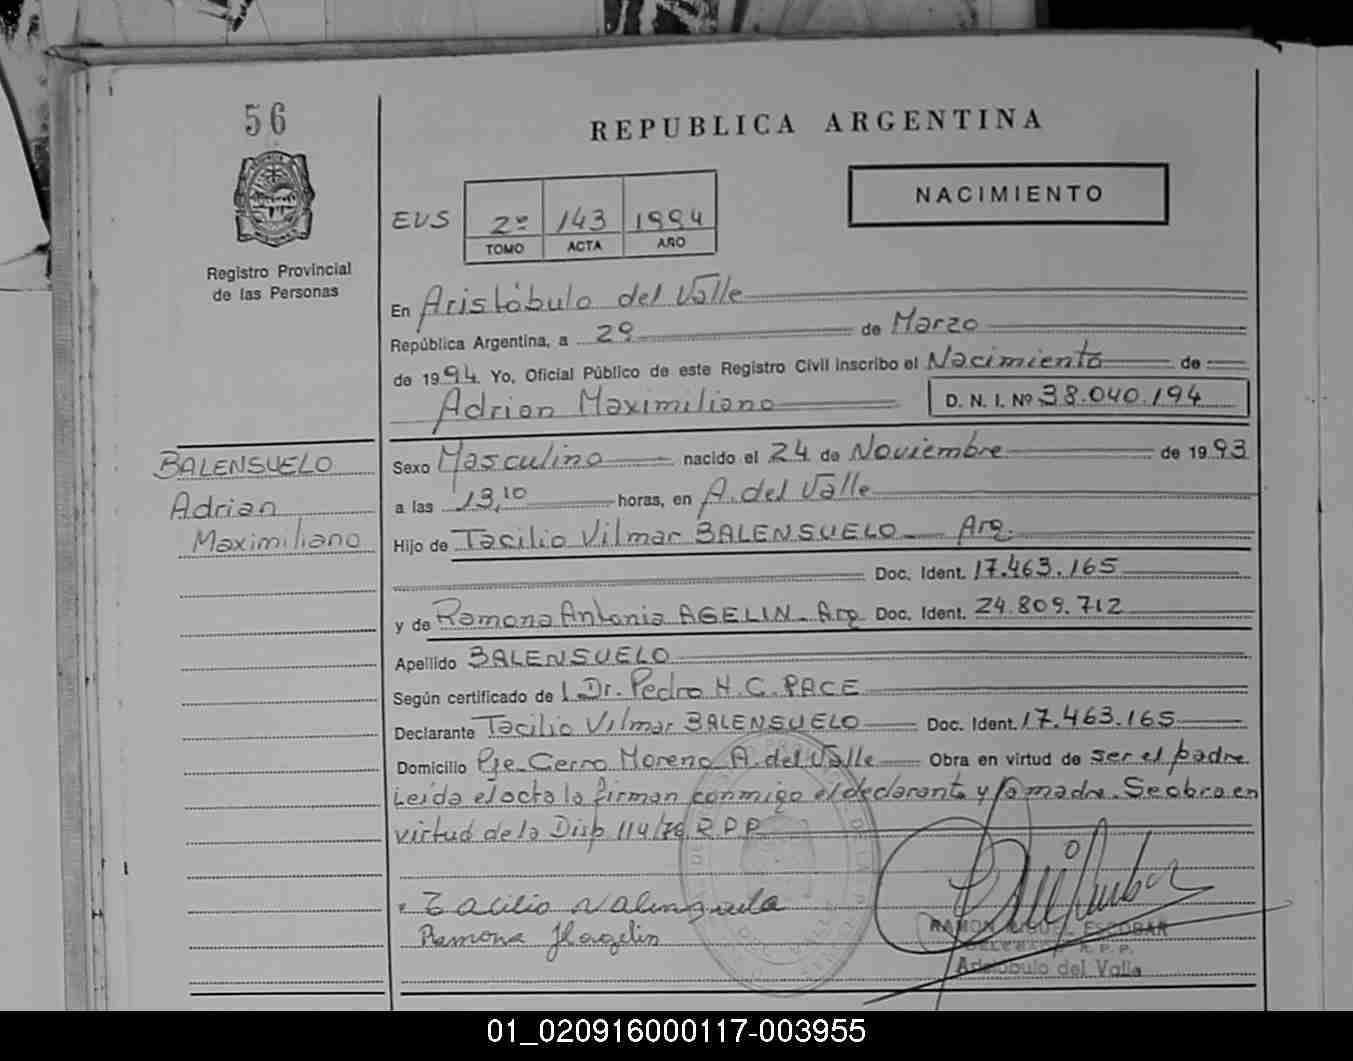 56
REPUBLICA ARGENTINA
NACIMIENTO
EUS 2º 143 1994
TOMO ACTA AÑO
Registro Provincial
de las Personas
En Aristóbulo del Valle
República Argentina, a 29 de Marzo
de 1994 Yo, Oficial Público de este Registro Civil inscribo el Nacimiento de
Adrian Maximiliano D. N. I. Nº 38.040.194
BALENSUELO
Adrian
Maximiliano
Sexo Masculino nacido el 24 de Noviembre de 1993
a las 13,10 horas, en A. del Valle
Hijo de Tacilio Vilmar BALENSUELO Arg.
Doc. Ident. 17.463.165
y de Ramona Antonia AGELIN - Arg Doc. Ident. 24.809.712
Apellido BALENSUELO
Según certificado de Dr. Pedro H. C. PACE
Declarante Tacilio Vilmar BALENSUELO Doc. Ident. 17.463.165
Domicilio Pje. Cerro Moreno A. del Valle Obra en virtud de ser el padre
Leida el acta la firman conmigo el declarante y la madre. Se obra en
virtud de la Disp 114/76 R.P.P.
Tacilio
Ramona
RAMON MIGUEL ESCOBAR
R. P. P.
Aristóbulo del Valle
01_020916000117-003955